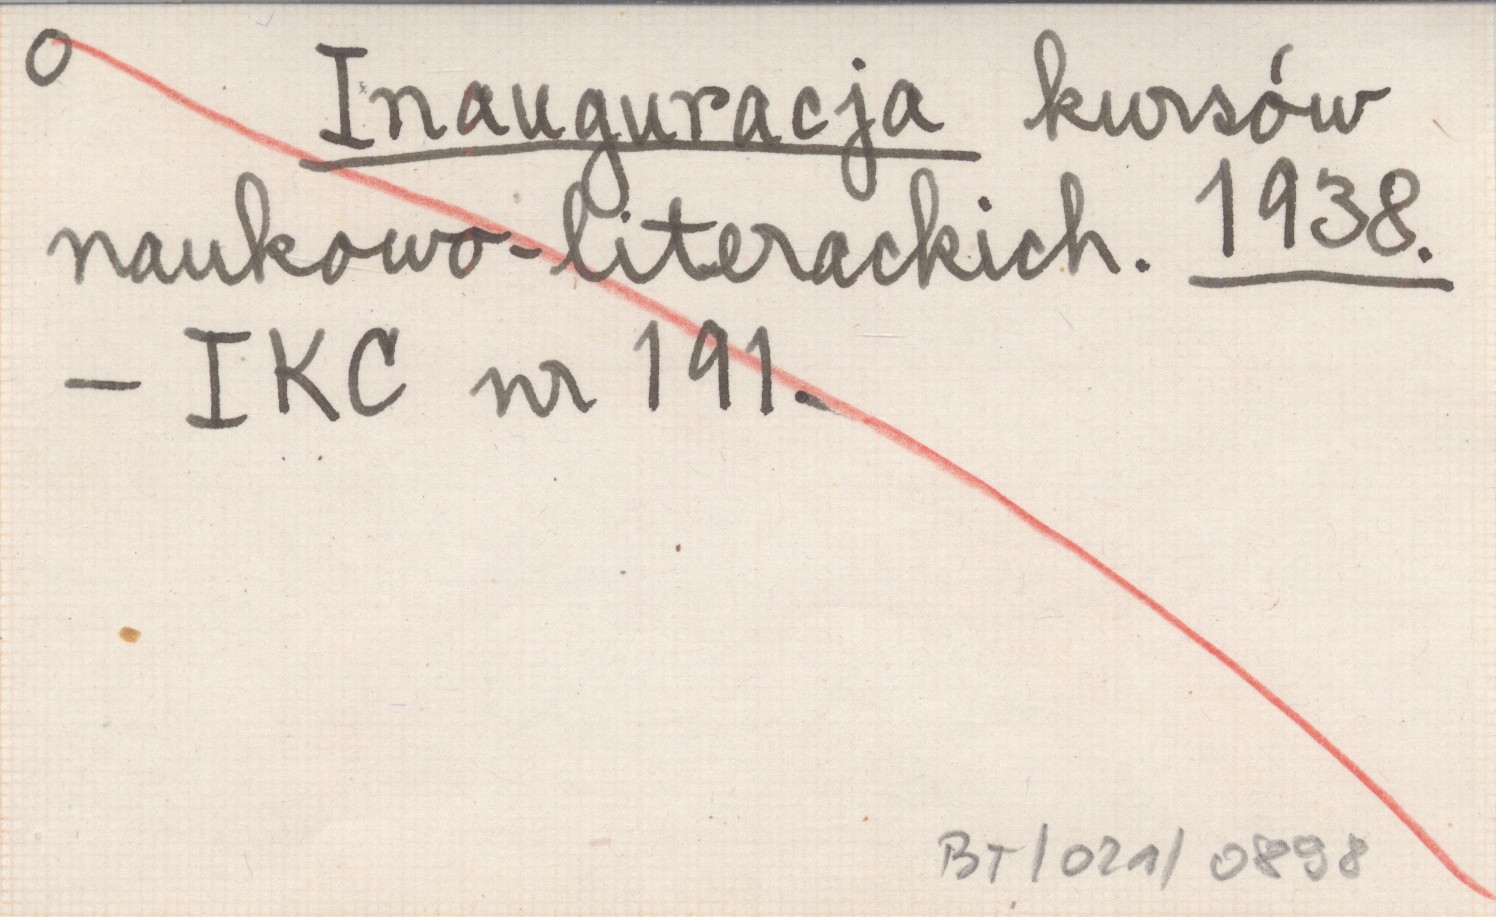 O Inauguracja kursów
naukowo-literackich. 1938.
– IKC nr 191.
BT/021/0898